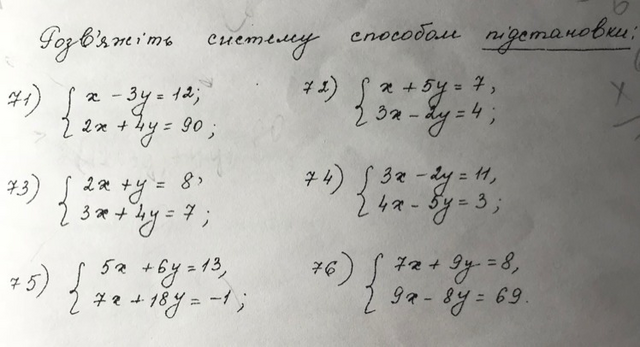 Розв'яжіть систему способом підстановки:
71) { x - 3y = 12;
2x + 4y = 90;
72) { x + 5y = 7,
3x - 2y = 4;
73) { 2x + y = 8,
3x + 4y = 7;
74) { 3x - 2y = 11,
4x - 5y = 3;
75) { 5x + 6y = 13,
7x + 18y = -1;
76) { 7x + 9y = 8,
9x - 8y = 69.